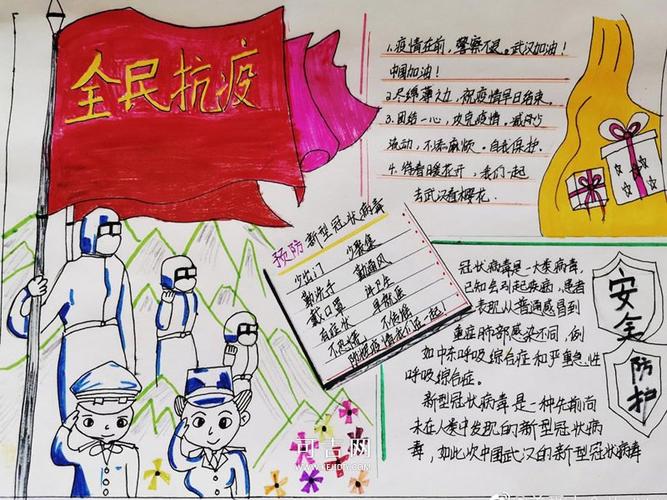 全民抗疫
1.疫情在前，警察不退。武汉加油！
中国加油！
2.尽绵薄之力，祝疫情早日结束。
3.团结一心，攻克疫情。减少
流动，不添麻烦。自我保护。
4.待春暖花开，我们一起
去武汉看樱花。
预防新型冠状病毒
少出门 少聚集
勤洗手 勤通风
戴口罩 讲卫生
有症状 早就医
不恐慌 不传谣
防控疫情我们在一起！
冠状病毒是一大类病毒，
已知会引起疾病，患者
表现从普通感冒到
重症肺部感染不同，例
如中东呼吸综合症和严重急性
呼吸综合症。
新型冠状病毒是一种先前尚
未在人类中发现的新型冠状病
毒，如此次中国武汉的新型冠状病毒
安全
防护
可吉网